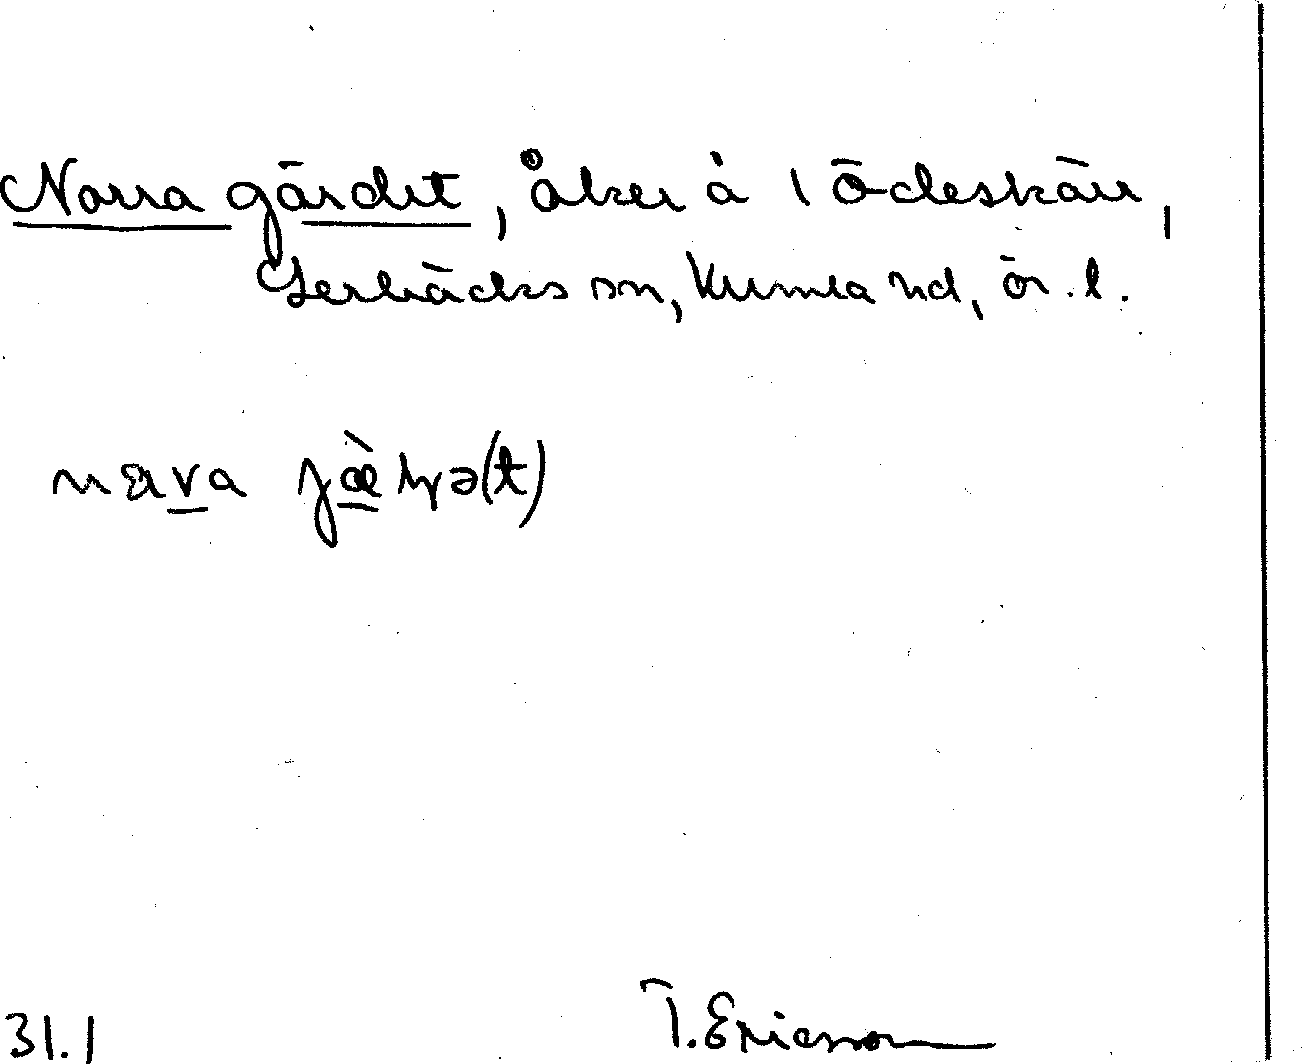 Norra gärdet, åker å 1 Ödeskärr,
Lerbäcks sn, Kumla hd, Ör. l.
31.1 T. Ericsson